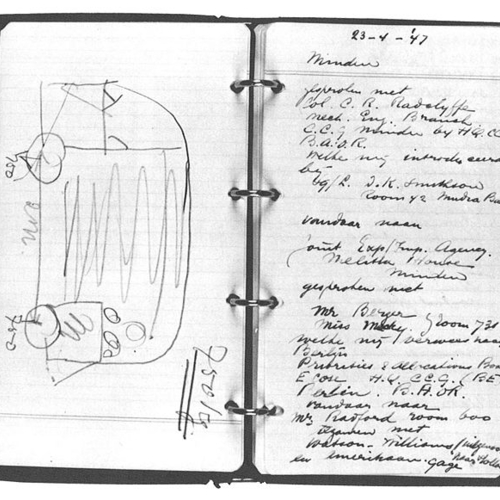 750
750
750 kg
23-4-'47
Minden
gesproken met
Col. C. R. Radclyffe
Mech. Eng. Branch
C.C.G Minden by H.Q. CC
B.A.O.R.
welke mij introduceer
by
J.K.
Room 42
vandaar naar
Joint Exp/Imp. Agency.
Melitta House
Minden
gesproken met
Mr Berger
Miss Room 731
welke mij verwees naar
Berlijn
Priorities & Allocations Boa
H.Q. C.C.G. (BE
Berlin. B.A.O.R.
vandaar naar
Mr Radford room 600
samen met
Watson-Williams
en Amerikaan. Gage